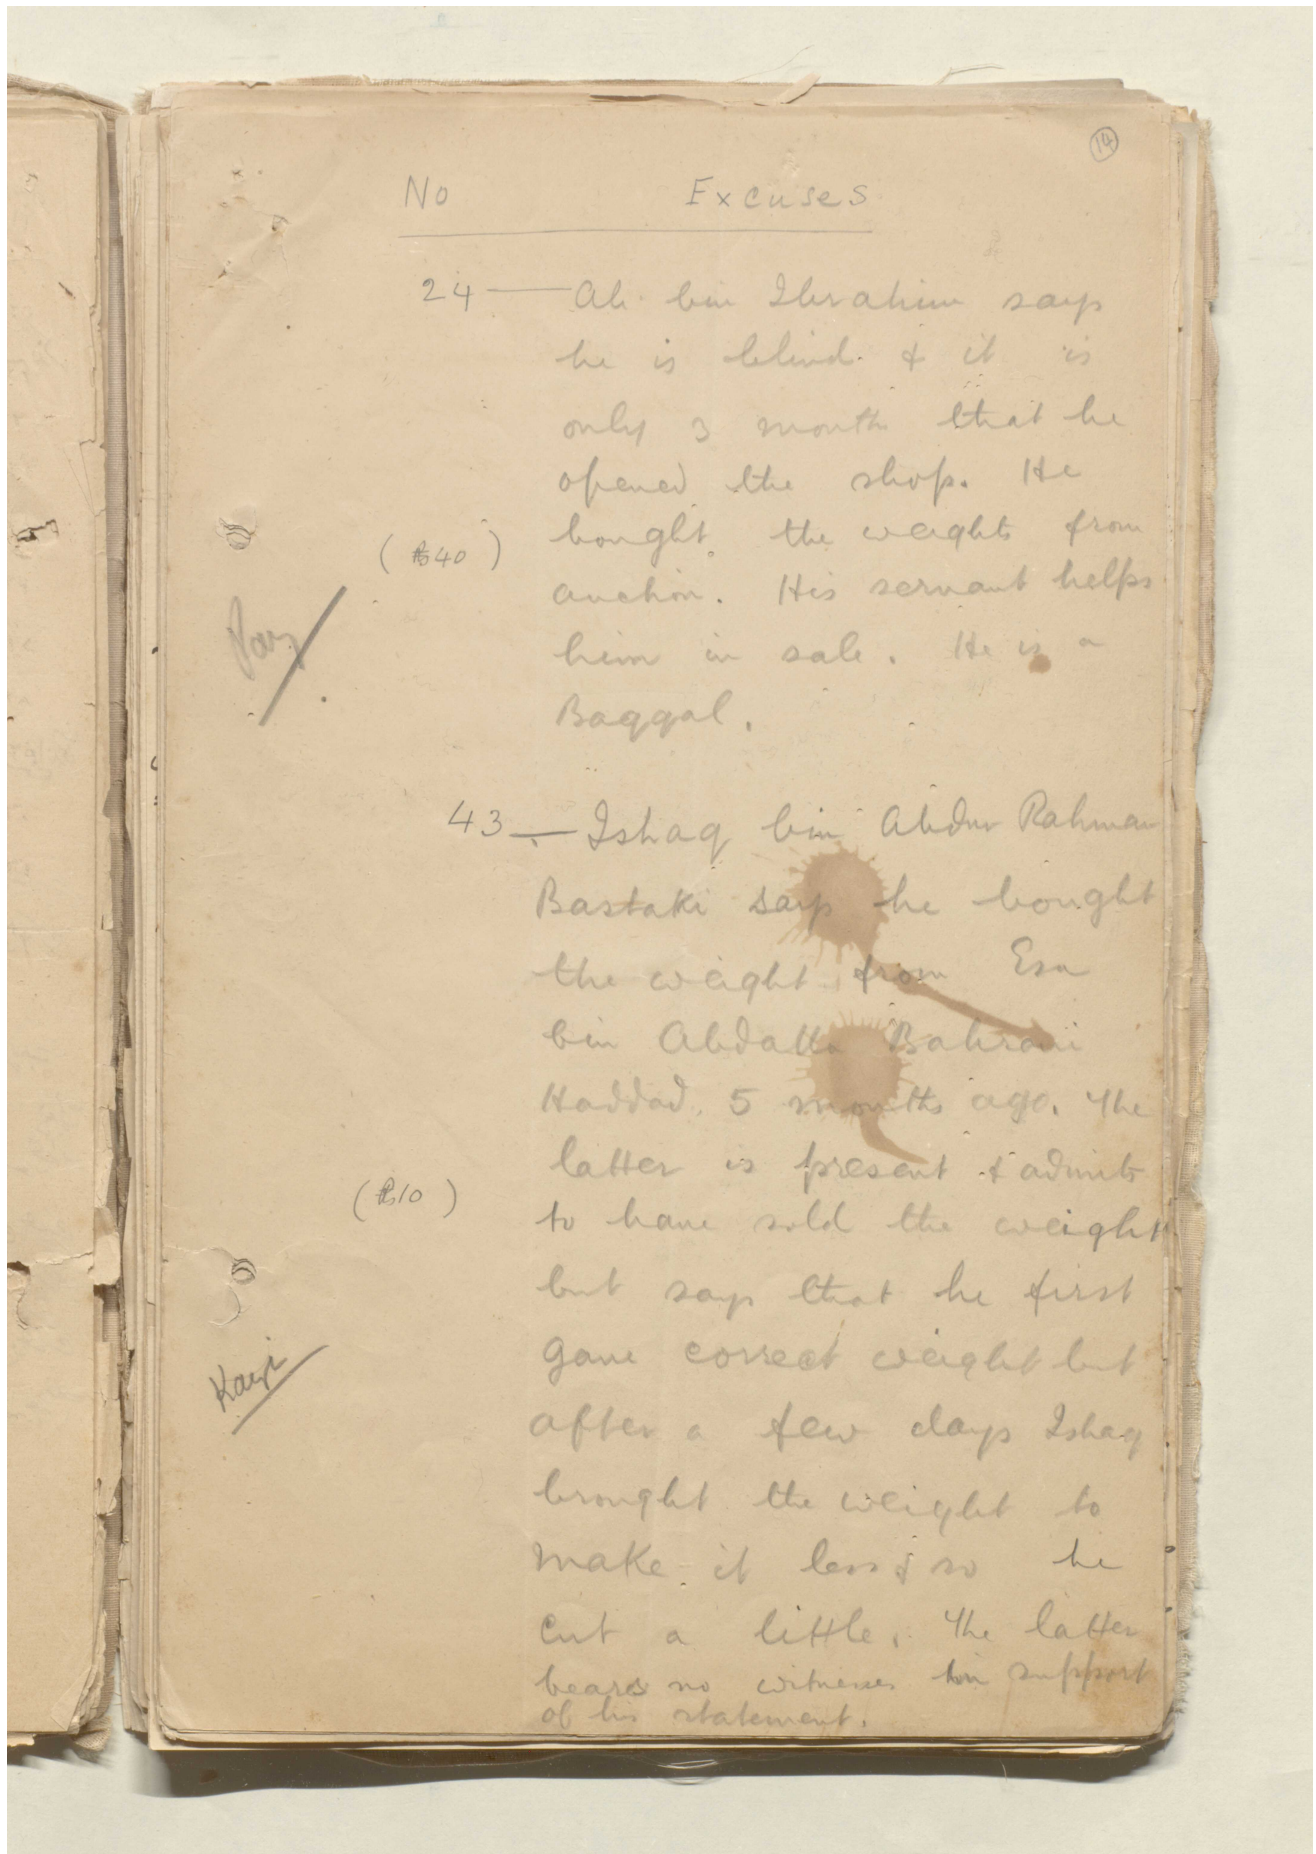 14
No Excuses
24 — Ali bin Ibrahim says
he is blind & it is
only 3 month that he
opened the shop. He
(Rs 40) bought the weights from
auction. His servant helps
Pay
him in sale. He is a
Baqqal.
43 — Ishaq bin Abdur Rahman
Bastaki says he bought
the weight from Esa
bin Abdalla Bahrani
Haddad 5 months ago. The
latter is present & admits
(Rs 10) to have sold the weight
but says that he first
Kazi
gave correct weight but
after a few days Ishaq
brought the weight to
make it less & so he
cut a little. The latter
bears no witnesses in support
of his statement.